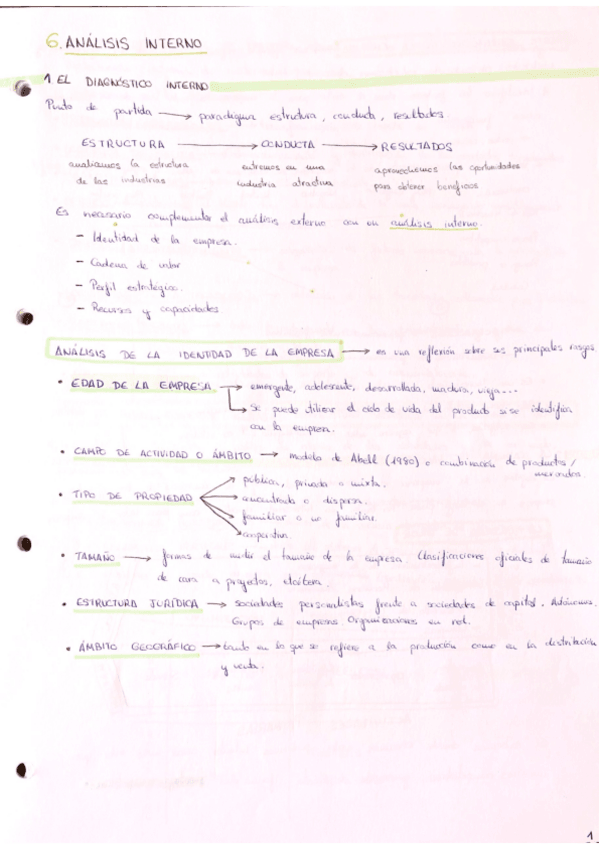 6. ANÁLISIS INTERNO
1 EL DIAGNÓSTICO INTERNO
Punto de partida → paradigma estructura, conducta, resultados
ESTRUCTURA → CONDUCTA → RESULTADOS
analizamos la estructura de las industrias
entremos en una industria atractiva
aprovechemos las oportunidades para obtener beneficios
Es necesario complementar el análisis externo con un análisis interno.
- Identidad de la empresa.
- Cadena de valor
- Perfil estratégico.
- Recursos y capacidades
ANÁLISIS DE LA IDENTIDAD DE LA EMPRESA → es una reflexión sobre sus principales rasgos.
• EDAD DE LA EMPRESA → emergente, adolescente, desarrollada, madura, vieja...
→ Se puede utilizar el ciclo de vida del producto si se identifica
con la empresa.
• CAMPO DE ACTIVIDAD O ÁMBITO → modelo de Abell (1980) o combinación de productos/
mercados.
• TIPO DE PROPIEDAD → pública, privada o mixta.
→ concentrada o dispersa.
→ familiar o no familiar.
→ cooperativa.
• TAMAÑO → formas de medir el tamaño de la empresa. Clasificaciones oficiales de tamaño
de cara a proyectos, etcétera.
• ESTRUCTURA JURÍDICA → sociedades personalistas frente a sociedades de capital. Autónomos.
Grupos de empresas Organizaciones en red.
• ÁMBITO GEOGRÁFICO → tanto en lo que se refiere a la producción como en la distribución
y venta.
1